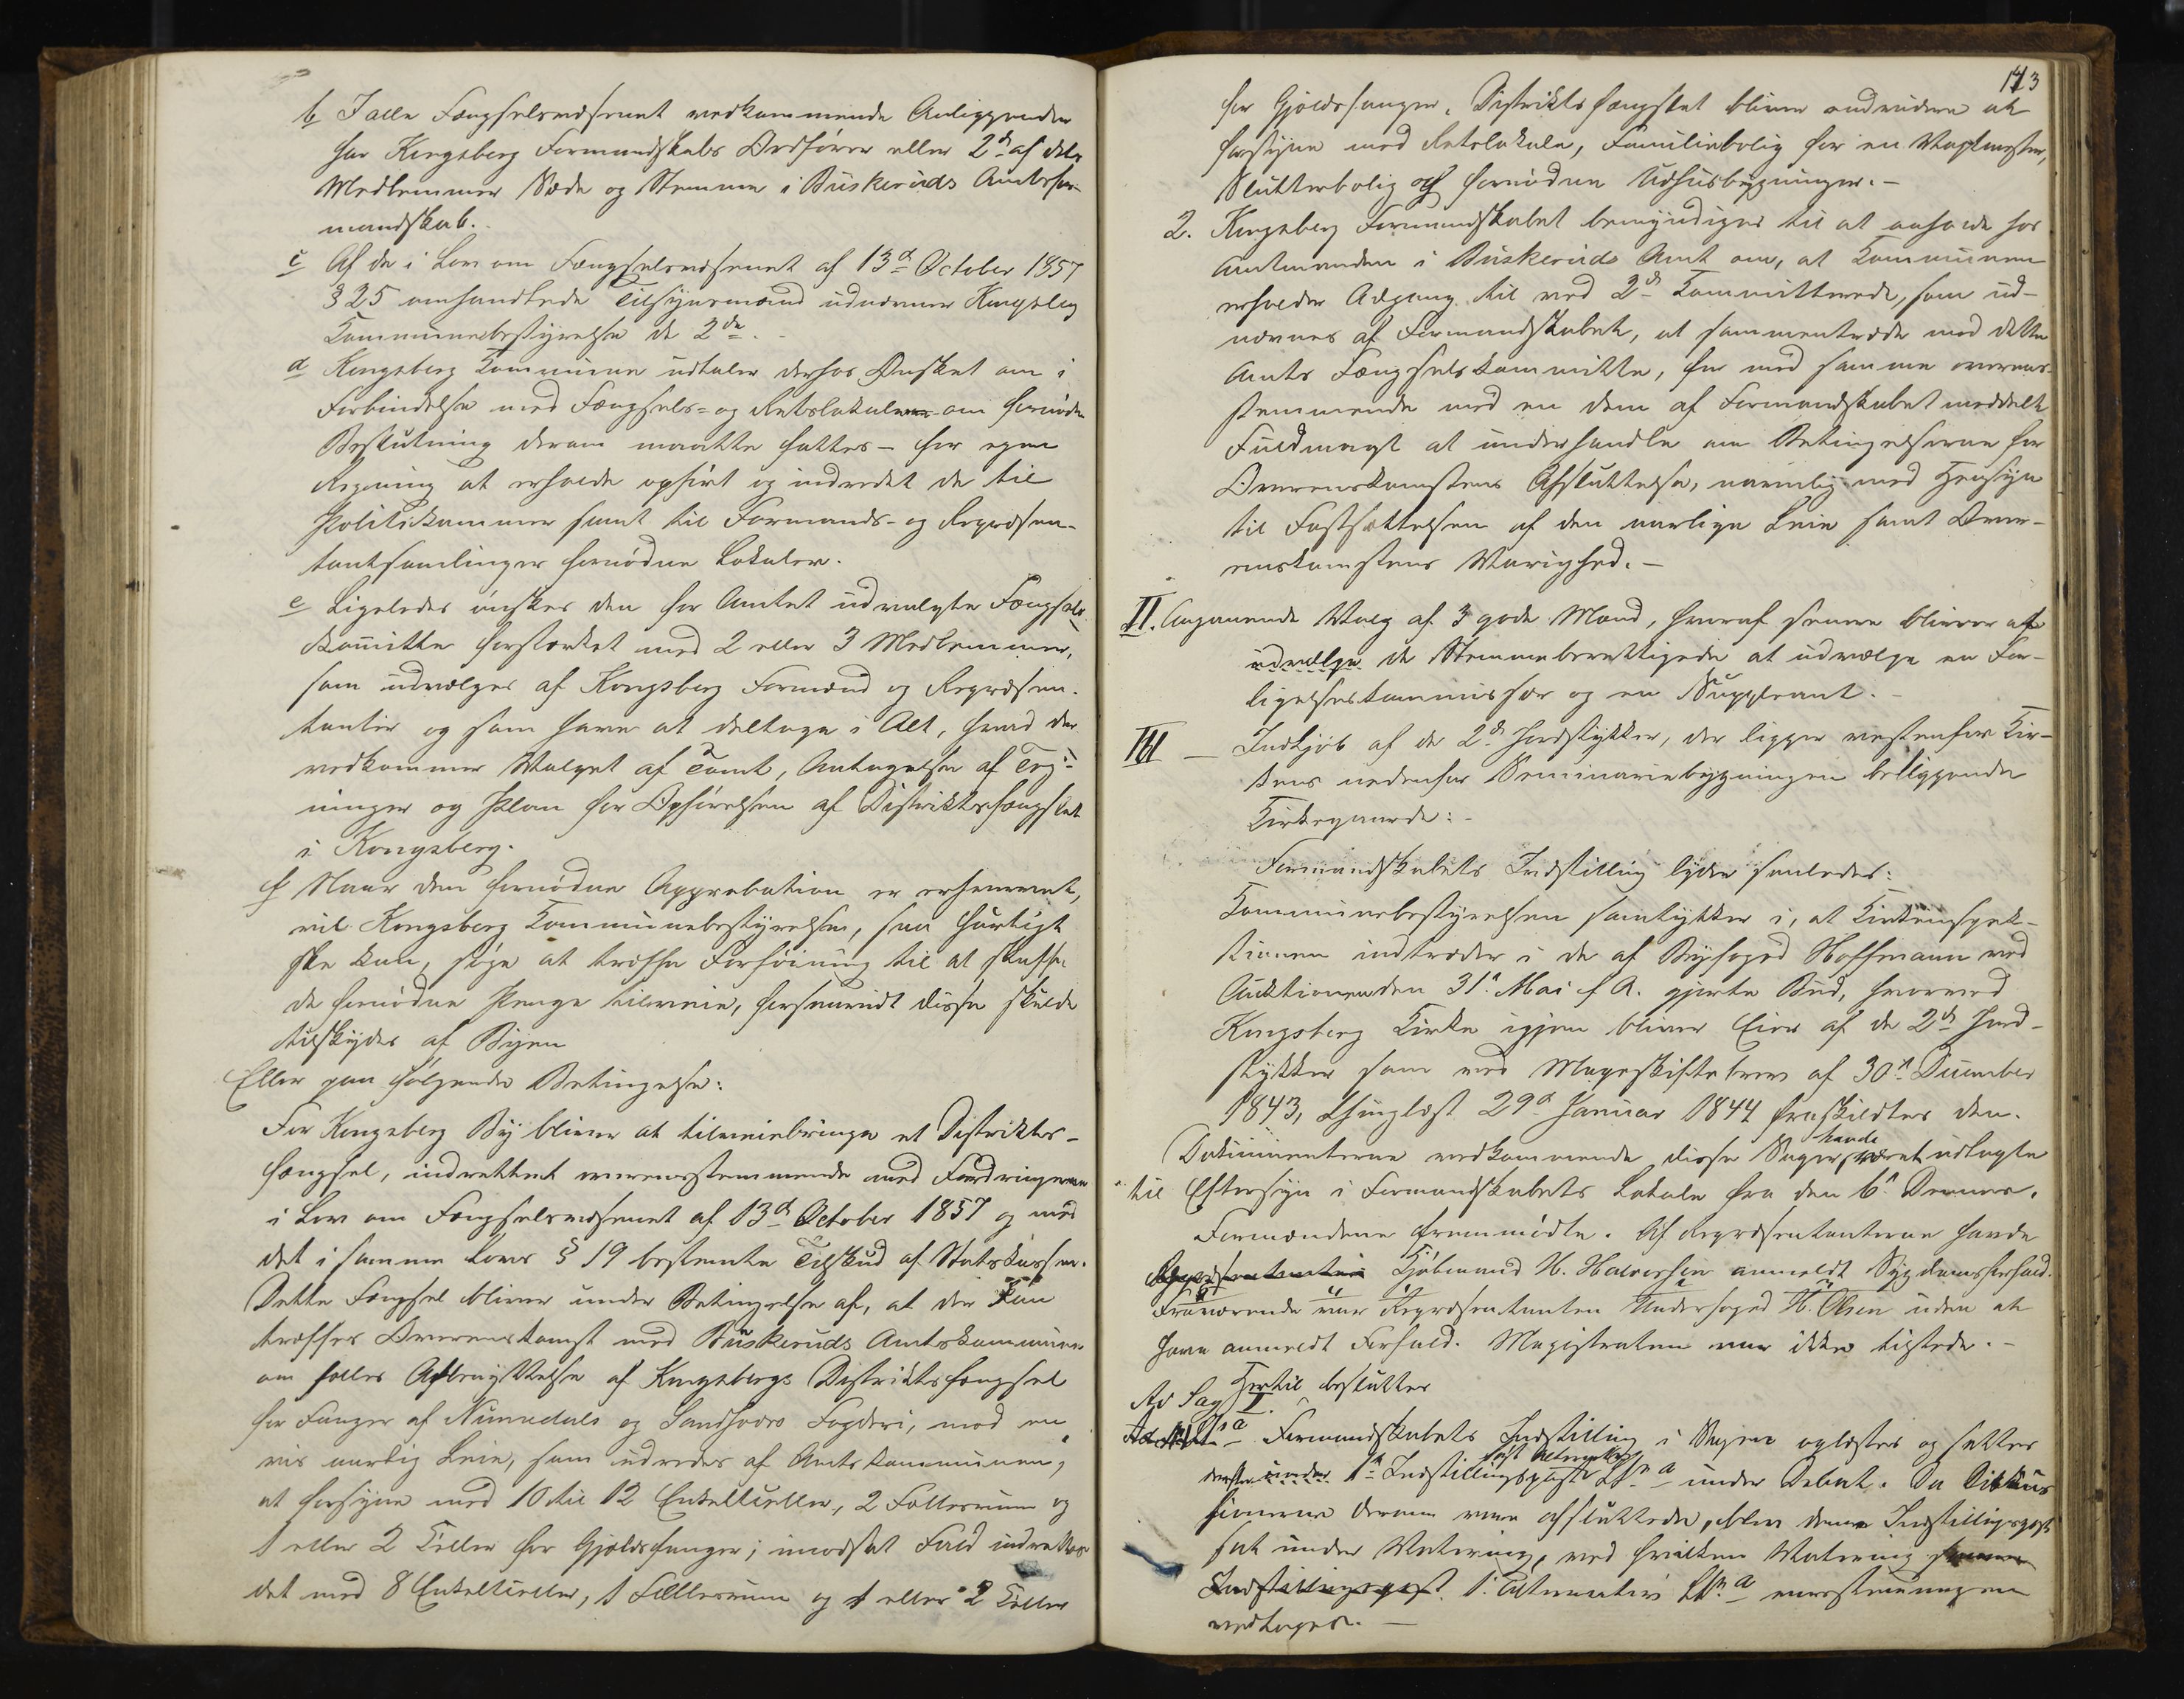 b I alle Fængselsvæsenet vedkommende Anliggender
har Kongsberg Formandskabs Ordfører eller 2de af dets
Medlemmer Sæde og Stemme i Buskeruds Amtsfor-
mandskab.
c Af de i Lov om Fængselsvæsenet af 13d October 1857
§ 25 omhandlede Tilsynsmænd udnævner Kongsberg
Kommunebestyrelse de 2de.
d Kongsberg Kommune udtaler derhos Ønsket om i
Forbindelse med Fængsels- og Retslokale om fornøden
Beslutning derom maatte fattes - for egen
Regning at erholde opført og indredet de til
Politikammer samt til Formands- og Repræsen-
tantsamlinger fornødne Lokaler.
e Ligeledes ønskes den for Amtet udvalgte Fængsels
Komitte forstærket med 2 eller 3 Medlemmer,
som udvælges af Kongsberg Formænd og Repræsen-
tanter og som have at deltage i Alt, hvad der
vedkommer Valget af Tomt, Antagelse af Teg-
ninger og Plan for Opførelsen af Distriktsfængslet
i Kongsberg.
f Naar den fornødne Approbation er erhvervet,
vil Kongsberg Kommunebestyrelse, saa hurtigt
ske kan, søge at træffe Forføining til at skaffe
de fornødne Penge tilveie, forsaavidt disse skulde
tilskydes af Byen
Eller paa følgende Betingelse:
For Kongsberg By bliver at tilveiebringe et Distrikts-
fængsel, indrettet overensstemmende med Fordringerne
i Lov om Fængselsvæsenet af 13d October 1857 og med
det i samme Lovs § 19 bestemte Tilskud af Statskassen.
Dette Fængsel bliver under Betingelse af, at der kan
træffes Overenskomst med Buskeruds Amtskommune
om fælles Afbenyttelse af Kongsbergs Distriktsfængsel
for Fanger af Numedals og Sandsværs Fogderi, mod en
vis aarlig Leie, som udredes af Amtskommunen,
at forsyne med 10 til 12 Enkeltceller, 2 Fællesrum og
1 eller 2 Celler for Gjældsfanger; i modsat Fald indrettes
det med 8 Enkeltceller, 1 Fællesrum og 1 eller 2 Celler
173
for Gjældsfanger. Distriktsfængslet bliver endvidere at
forsyne med Retslokale, Familiebolig for en Vagtmester,
Slutterbolig og fornødne Udhusbygninger. -
2. Kongsberg Formandskabet bemyndiges til at anholde hos
Amtmanden i Buskeruds Amt om, at Kommunen
erholder Adgang til ved 2de Committerede, som ud-
nævnes af Formandskabet, at sammentræde med dette
Amts Fængselskommitte, for med samme overens-
stemmende med en dem af Formandskabet meddelt
Fuldmagt at underhandle om Betingelserne for
Overenskomstens Afsluttelse, navnlig med Hensyn
til Fastsættelsen af den aarlige Leie samt Over-
enskomstens Varighed. -
II. Angaaende Valg af 3 gode Mænd, hvoraf senere bliver af
udvælge de Stemmeberettigede at udvælge en For-
ligelseskommissær og en Suppleant. -
III - Indkjøb af de 2de Jordstykker, der ligger vestenfor Kir-
kens nedenfor Seminariebygningen beliggende
Kirkegaarde: -
Formandskabets Indstilling lyder saaledes:
Kommunebestyrelsen samtykker i, at Kirkeinspek-
tionen indtræder i de af Byfoged Hoffmann ved
Auktionen den 31te Mai f A. gjorte Bud, hvorved
Kongsberg Kirke igjen bliver Eier af de 2de Jord-
stykker som ved Mageskiftebrev af 30te December
1843, thinglæst 29d Januar 1844 fraskildtes den.
Dokumenterne vedkommende disse Sager havde været udlagte
til Eftersyn i Formandskabets Lokale fra den 6te Dennes.
Formændene fremmødte. Af Repræsentanterne havde
Repræsentanten Kjøbmand H. Halvorsen anmeldt Sygdomsforfald.
Fraværende var Repræsentanten Underfoged H. Olsen uden at
have anmeldt Forfald. Magistraten var ikke tilstede. -
Hertil besluttes
Ad Sag I.
Formandskabets Indstilling i Sagen oplæstes og sattes
derefter under 1ste Indstillingspost 1ste Alternativ Litr a under Debat. Da Diskus
sionerne derom vare afsluttede, blev denne Indstillingspost
sat under Votering, ved hvilken Votering
Indstillingspost 1ste Alternativ Litr a eenstemmigen
vedtoges. -